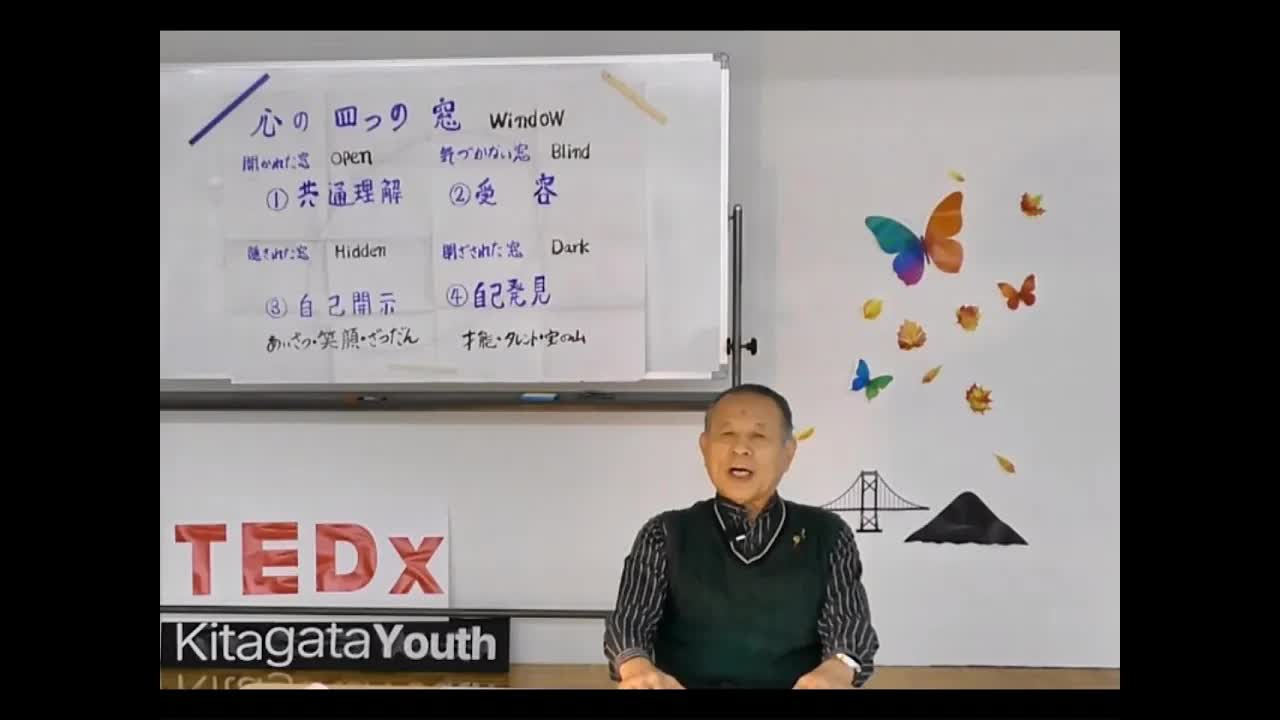 心の四つの窓 Window
開かれた窓 Open 気づかない窓 Blind
①共通理解 ②受容
隠された窓 Hidden 閉ざされた窓 Dark
③自己開示 ④自己発見
あいさつ・笑顔・ざつだん 才能・タレント・宝の山
TEDx
KitagataYouth